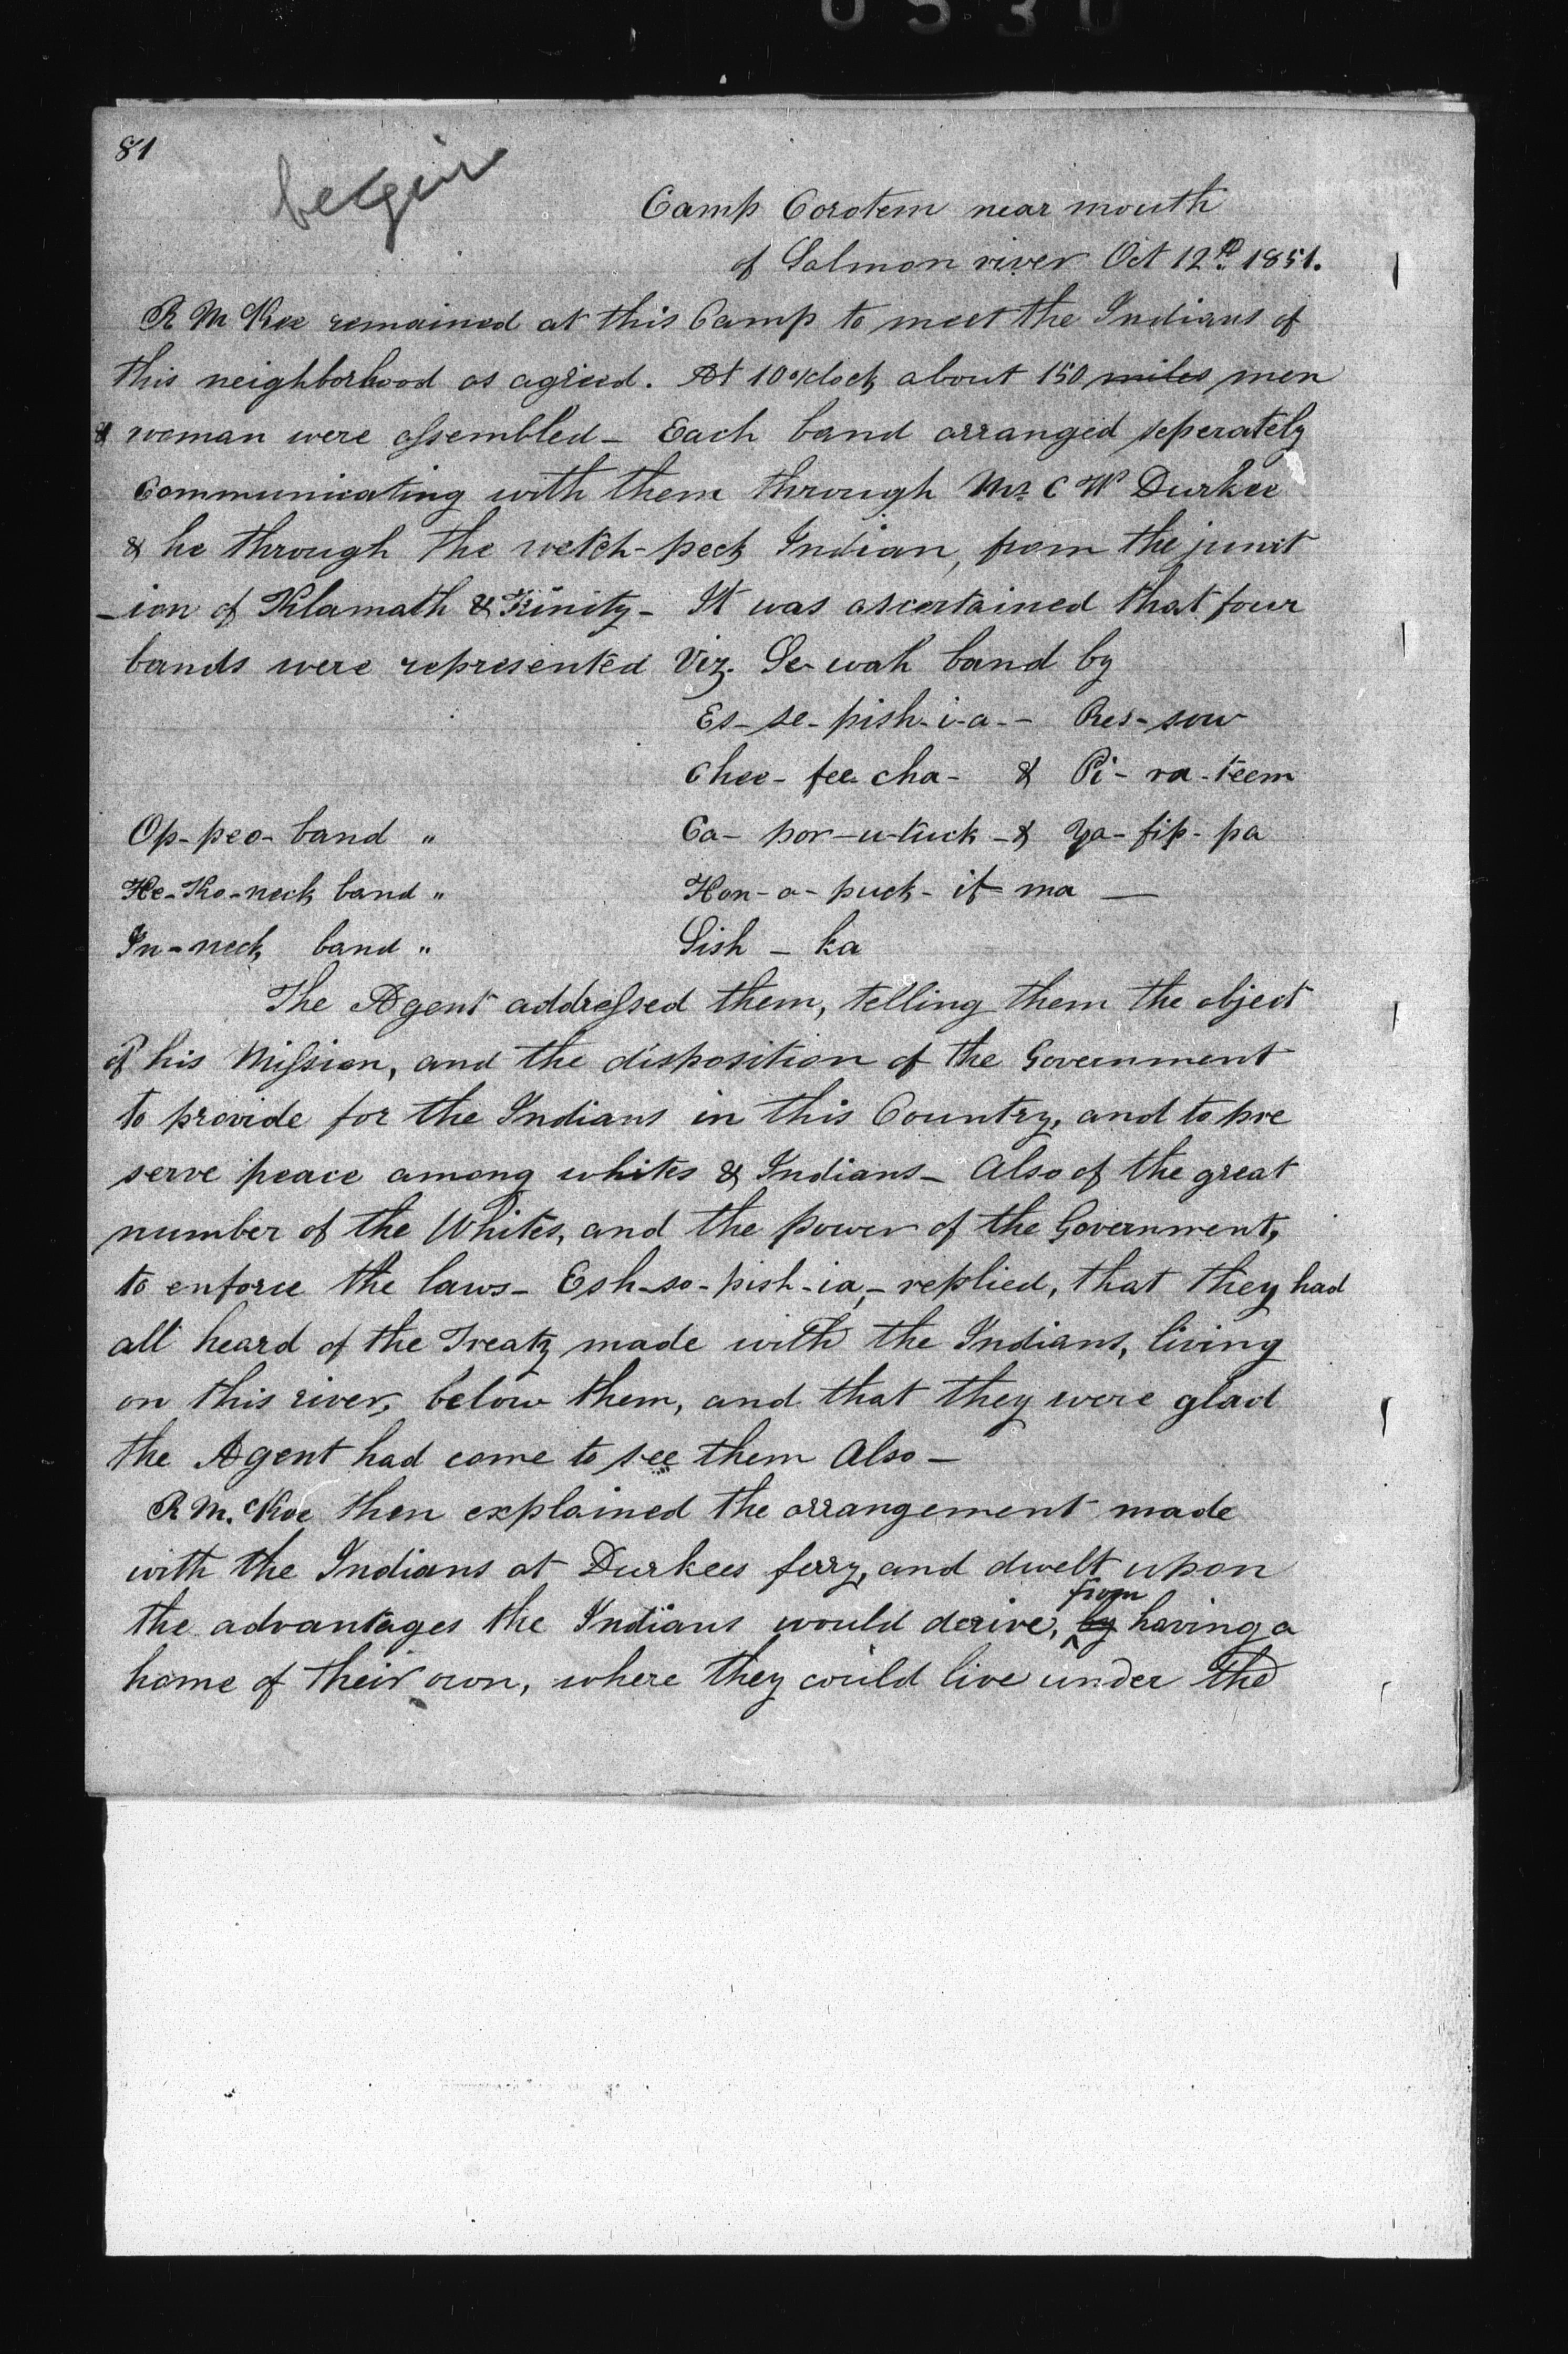 0530
81
begin
Camp Corotem near mouth
of Salmon river Oct 12th 1851.
R McKee remained at this Camp to meet the Indians of
this neighborhood as agreed. At 10 o'clock about 150 miles men
& woman were assembled - Each band arranged seperately
Communicating with them through Mr. C W Durkee
& he through the wetch-peck Indian, from the junct
-ion of Klamath & Trinity - It was ascertained that four
bands were represented Viz. Se-wah band by
Es-se-pish-i-a-- Res-sow
Chee-fee cha- & Pi-ra-teem
Op-peo-band " Ca-por-u-tuck-& Ya-fip-pa
He-Ko-neck band " Hon-o-puck-if=ma —
In-neck band " Sish-ka
The Agent addressed them, telling them the object
of his Mission, and the disposition of the Government
to provide for the Indians in this Country, and to pre
serve peace among whites & Indians - Also of the great
number of the Whites, and the power of the Government,
to enforce the laws - Esh-so-pish-ia,- replied, that they had
all heard of the Treaty made with the Indians, living
on this river, below them, and that they were glad
the Agent had come to see them Also —
R McKee then explained the arrangement made
with the Indians at Durkees ferry, and dwelt upon
the advantages the Indians would derive, by from having a
home of their own, where they could live under the